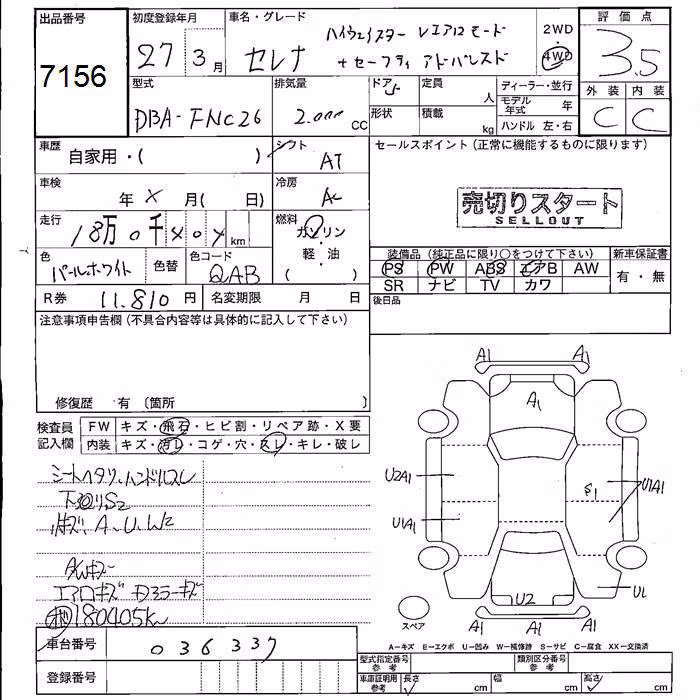 出品番号 初度登録年月 車名・グレード 評価点
7156 27年 3月 セレナ ハイウェイスター 2WD 3.5
+セーフティ アドバンスド ・4WD
型式 排気量 ドア 定員 人 ディーラー・並行 外装 内装
DBA-FNC26 2.000 CC 形状 積載 kg モデル年式 年 C C
ハンドル 左・右
車歴 自家用・( ) シフト AT セールスポイント(正常に機能するものに限ります)
車検 年 X 月( 日) 冷房 AC 売切りスタート
SELLOUT
走行 18万0千 km 燃料 ガソリン
軽・油
( )
装備品(純正品に限り○をつけて下さい) 新車保証書
色 パールホワイト 色替 色コード QAB PS PW ABS エアB AW 有・無
R券 11.810円 名変期限 月 日 SR ナビ TV カワ
後日品
注意事項申告欄(不具合内容等は具体的に記入して下さい)
修復歴 有 〔箇所 〕
検査員 FW キズ・飛石・ヒビ割・リペア跡・X要
記入欄 内装 キズ・汚レ・コゲ・穴・スレ・キレ・破レ
シートヘタリ、ハンドルスレ
下廻りS2
A、U、W2
AWキズ
エアロキズ ドアミラーキズ
180405k
A1 A1
A1
U2A1
S1
U1A1
U1A1
U1
U2
スペア A1 A1 A1
A-キズ E-エクボ U-凹み W-補修跡 S-サビ C-腐食 XX-交換済
車台番号 036337 型式指定番号 参考 類別区分番号 参考
登録番号 車庫証明用 参考 長さ cm 幅 cm 高さ cm